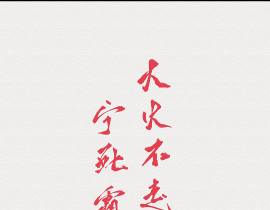 大火不走
宁死